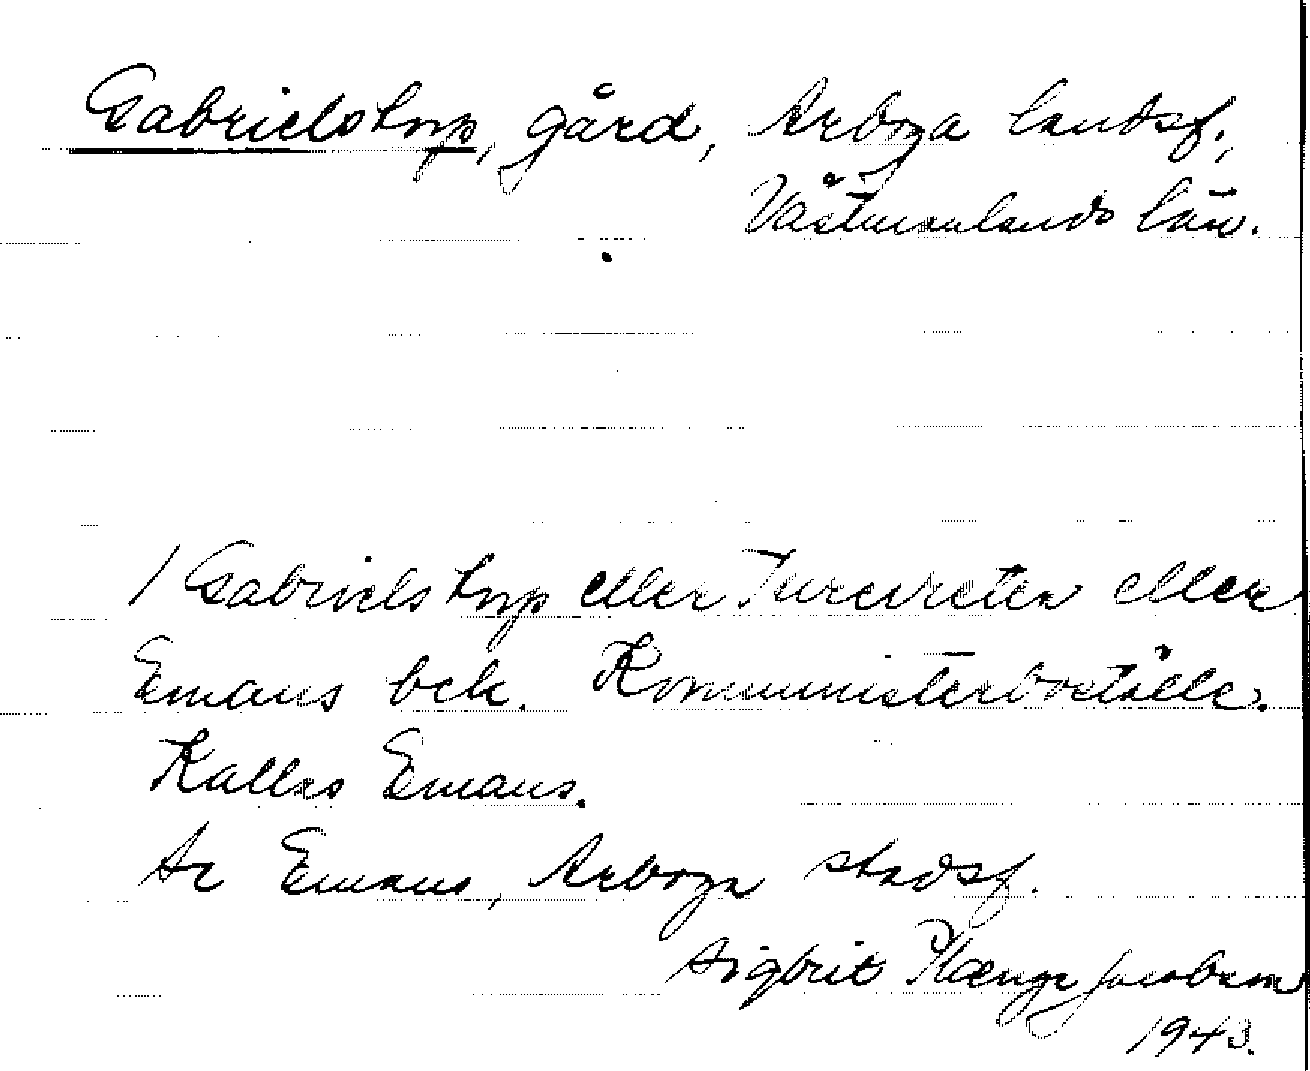 Gabrielstorp, gård, Arboga landsf.,
Västmanlands län.
1 Gabrielstorp eller Turevreten eller
Emaus bek. Komministerboställe.
Kallas Emaus.
Är Emaus, Arboga stadsf.
Sigbrit Plænge Jacobson
1943.